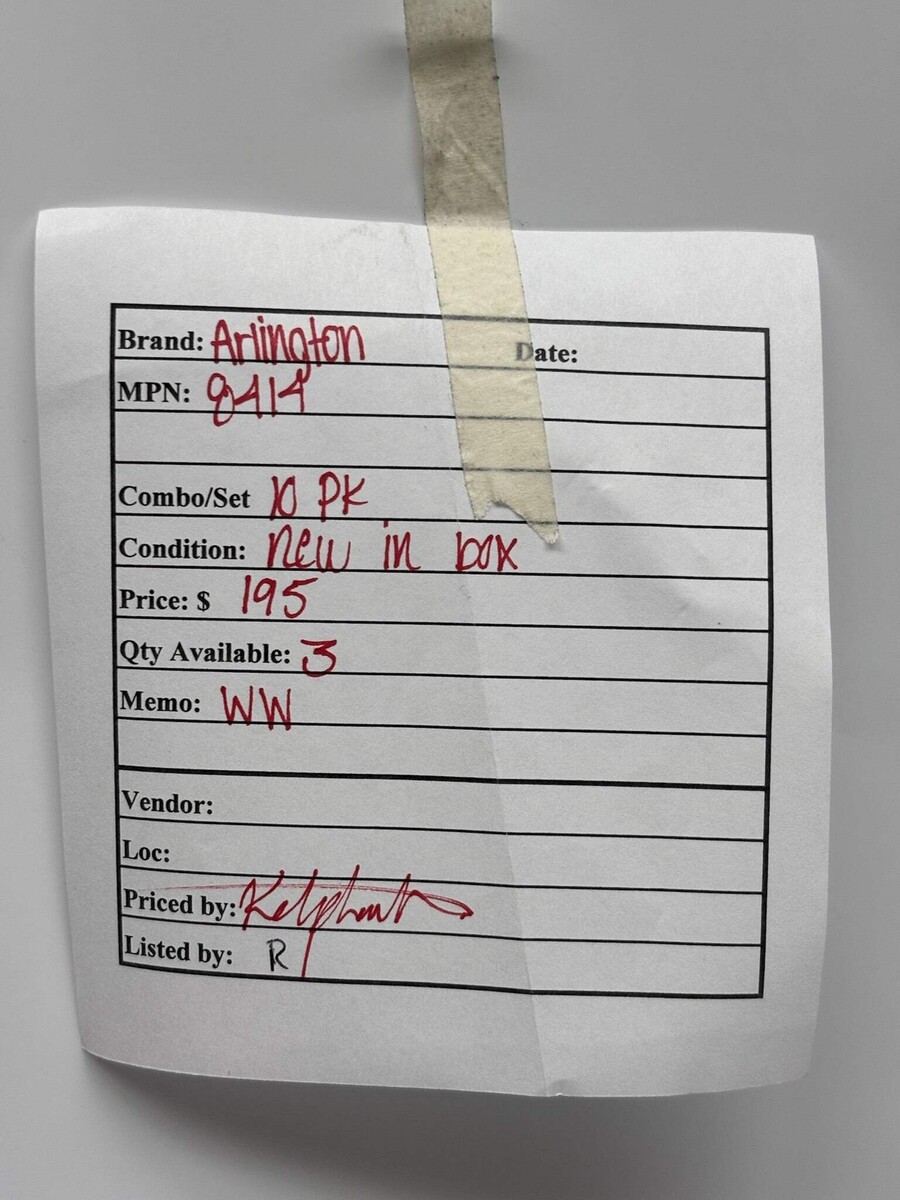 Brand: Arlington Date:
MPN: 8414
Combo/Set 10 PK
Condition: new in box
Price: $ 195
Qty Available: 3
Memo: WW
Vendor:
Loc:
Priced by:
Listed by: R